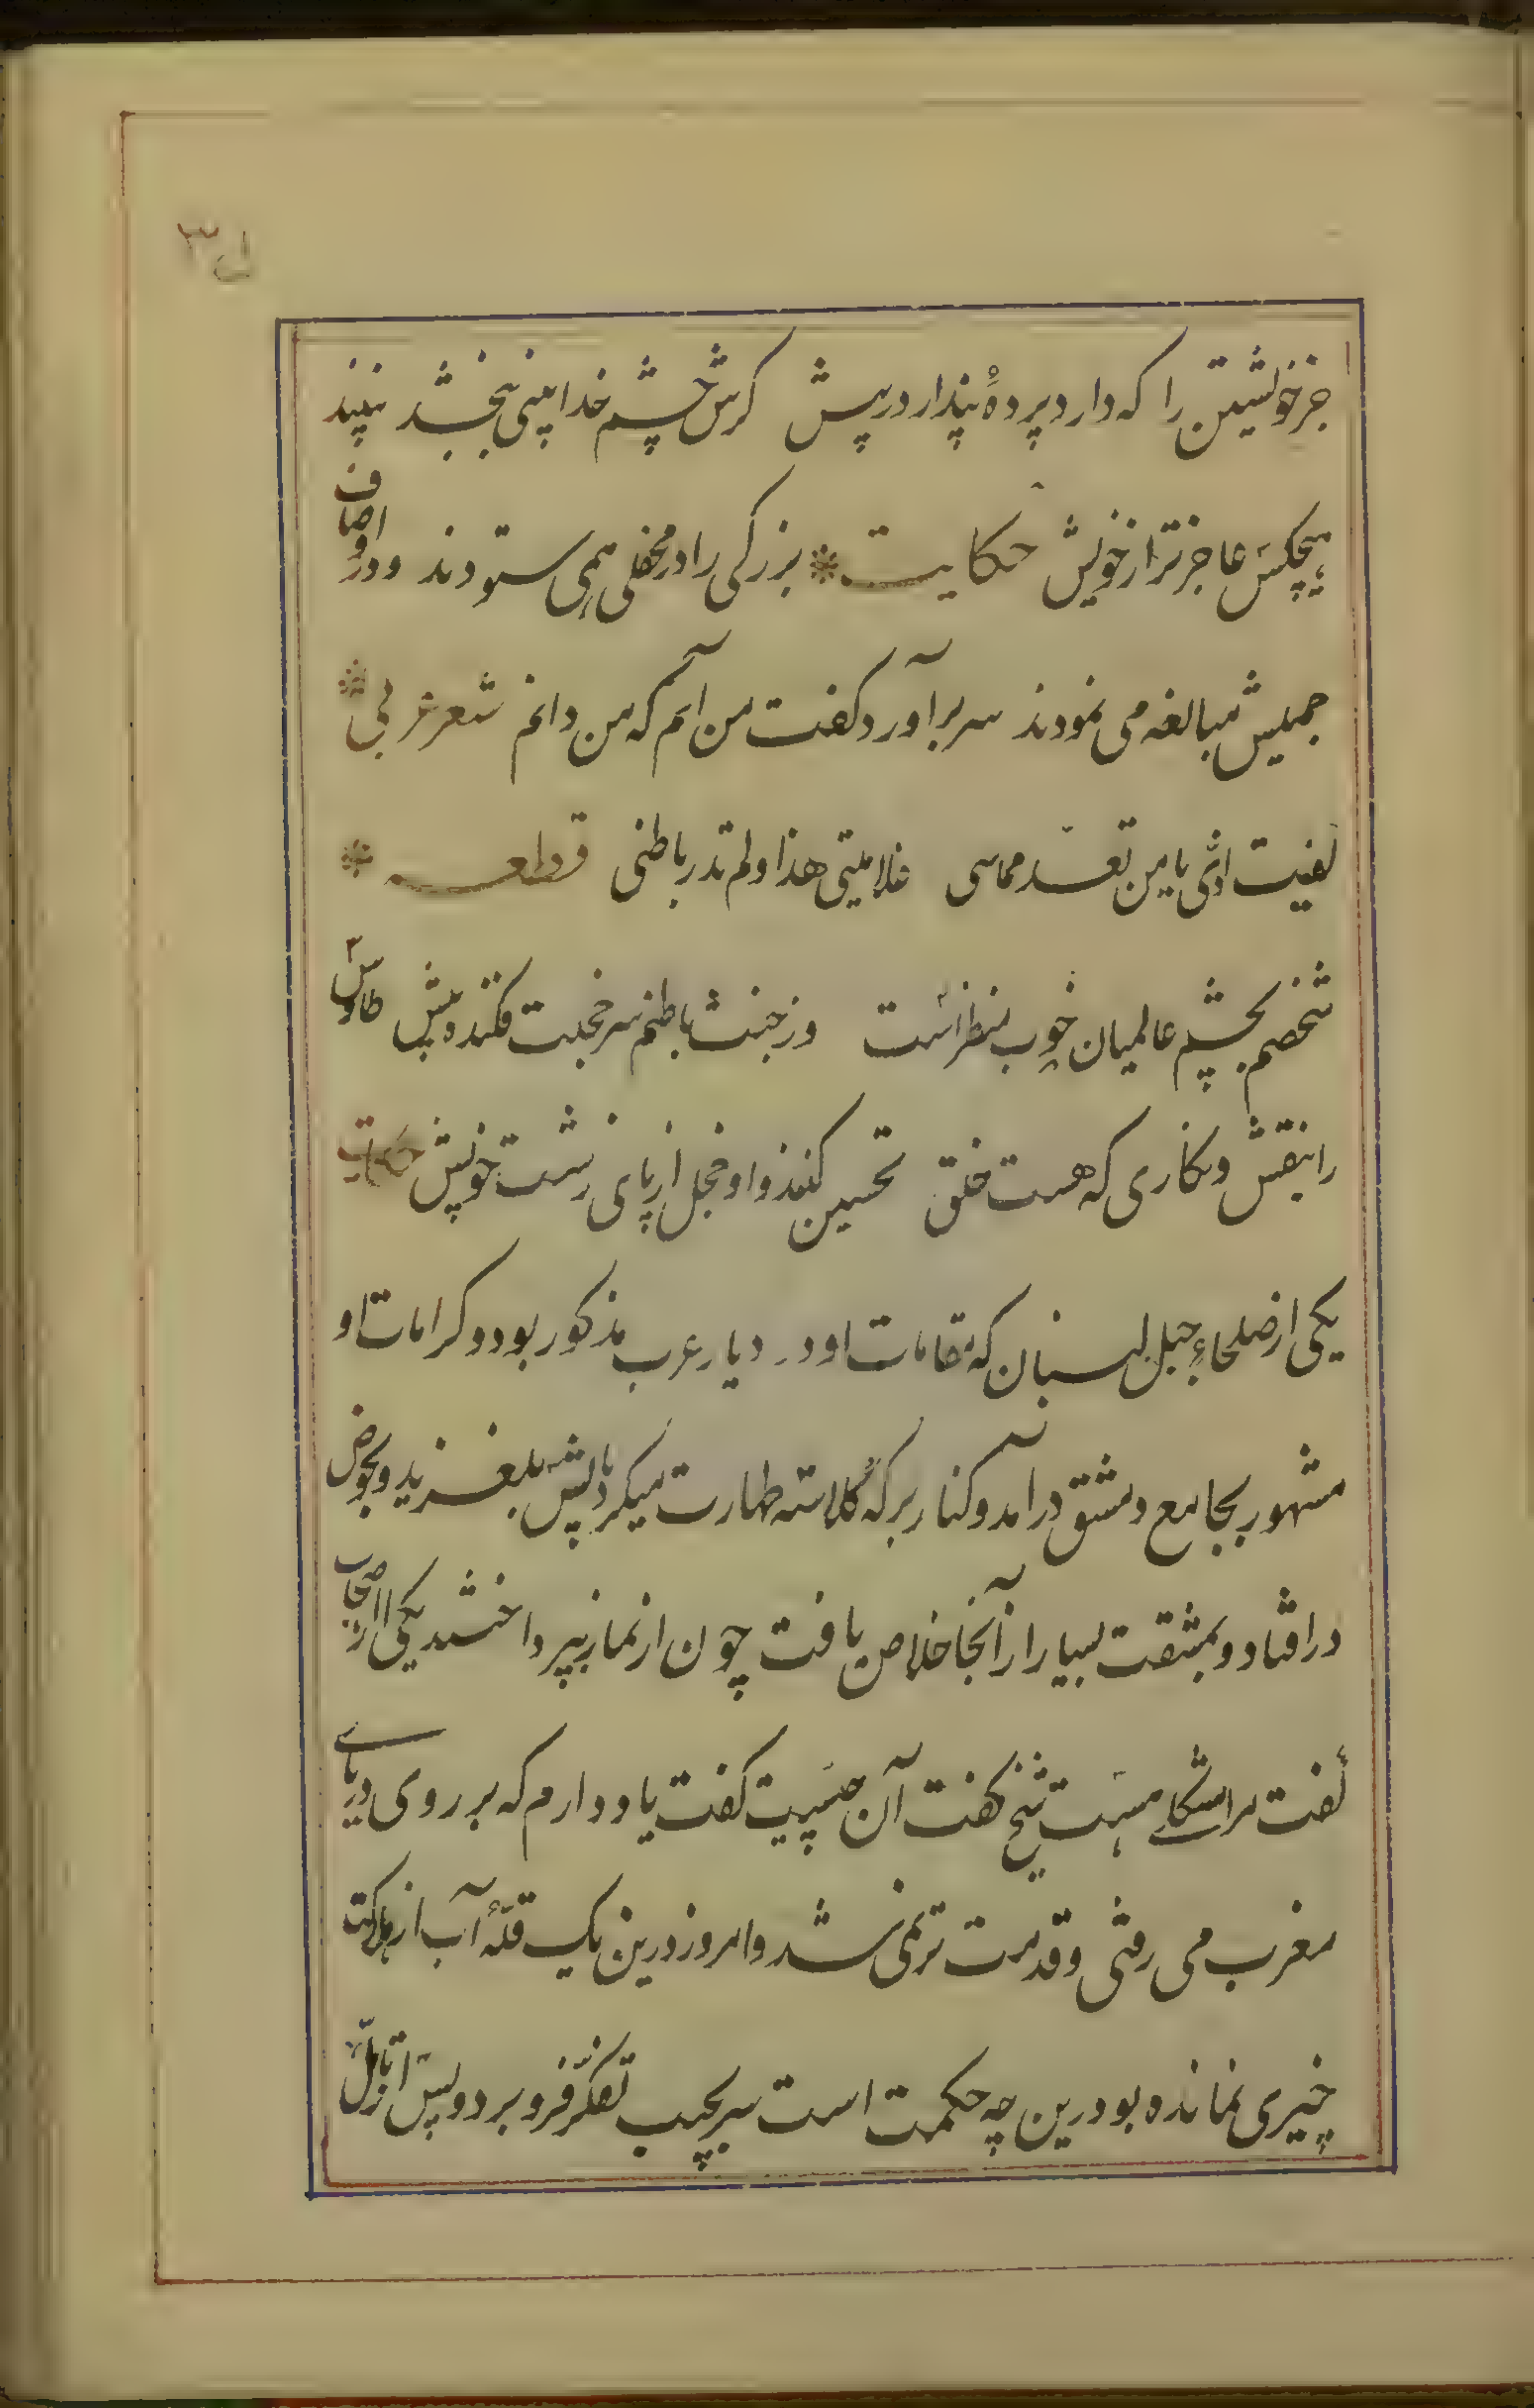 جز خویشتن را که دارد پردهٔ پندار در پیش کرش چشم خدا بینی ببخشد نبیند
هیچکس عاجزتر از خویش حکایت * بزرکی را در محفلی همی ستودند و در اوصاف
جمیلش مبالغه می نمودند سر برآورد کفت من آنم که من دانم شعر عربی *
کفیت اذی یا من تعد محاسنی علانیتی هذا و لم تدر باطنی قطعه *
شخصم بچشم عالمیان خوب منظر است وز خبث باطنم سر خجلت فکنده پیش طاوس
را بنقش و نکاری که هست خلق تحسین کنند و او خجل از پای زشت خویش حکایت
یکی از صلحاء جبل لبنان که مقامات او در دیار عرب مذکور بود و کرامات او
مشهور بجامع دمشق درآمد و کنار برکهٔ کلاسه طهارت میکرد پایش بلغزید و بحوض
در افتاد و بمشقت بسیار از آنجا خلاص یافت چون از نماز بپرداختند یکی از اصحاب
کفت مرا مشکلے هست شیخ کفت آن چیست کفت یاد دارم که بر روی دریاے
مغرب می رفتی و قدمت تر نمی شد و امروز درین یک قلّهٔ آب از هلاکت
چیزی نمانده بود درین چه حکمت است سر بجیب تفکّر فرو برد و پس از تأمّل